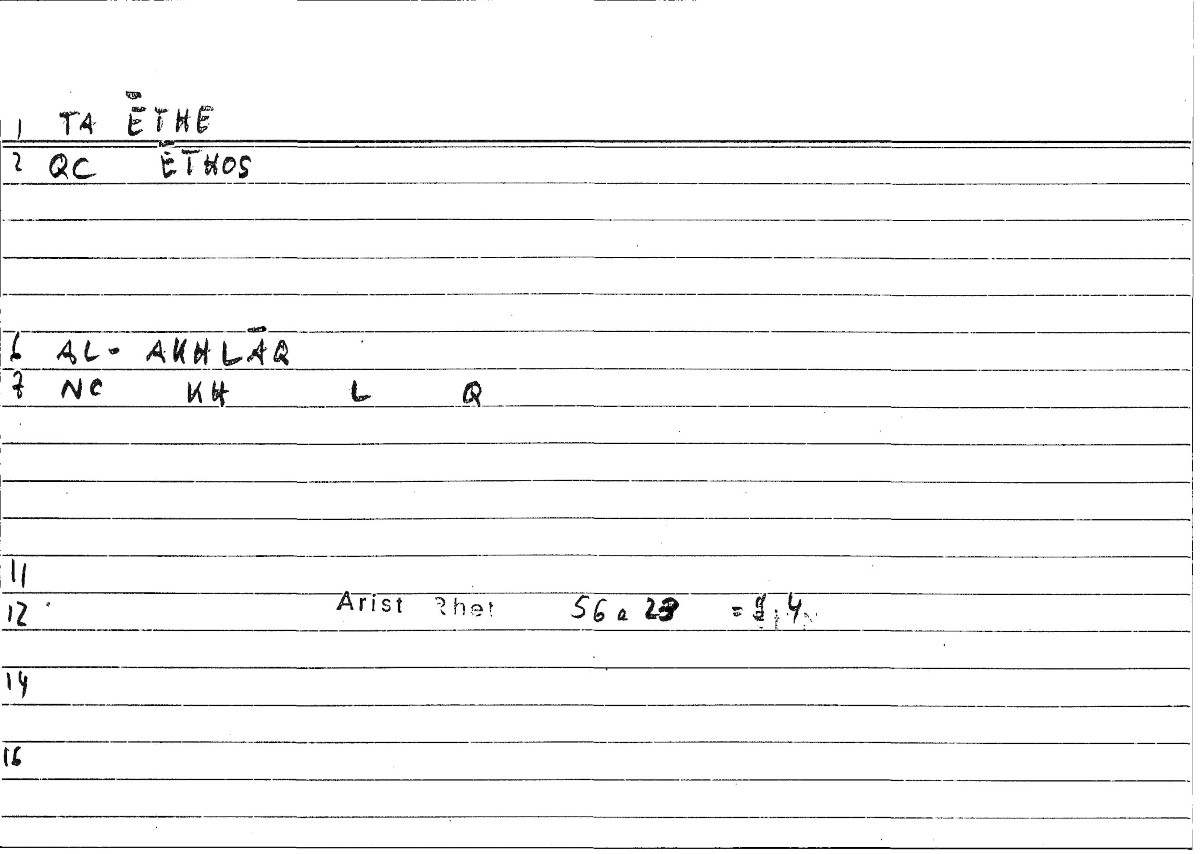 1 TA ĒTHĒ
2 QC ĒTHOS
6 AL- AKHLĀQ
7 NC KH L Q
11
12 Arist Rhet 56 a 23
14
16